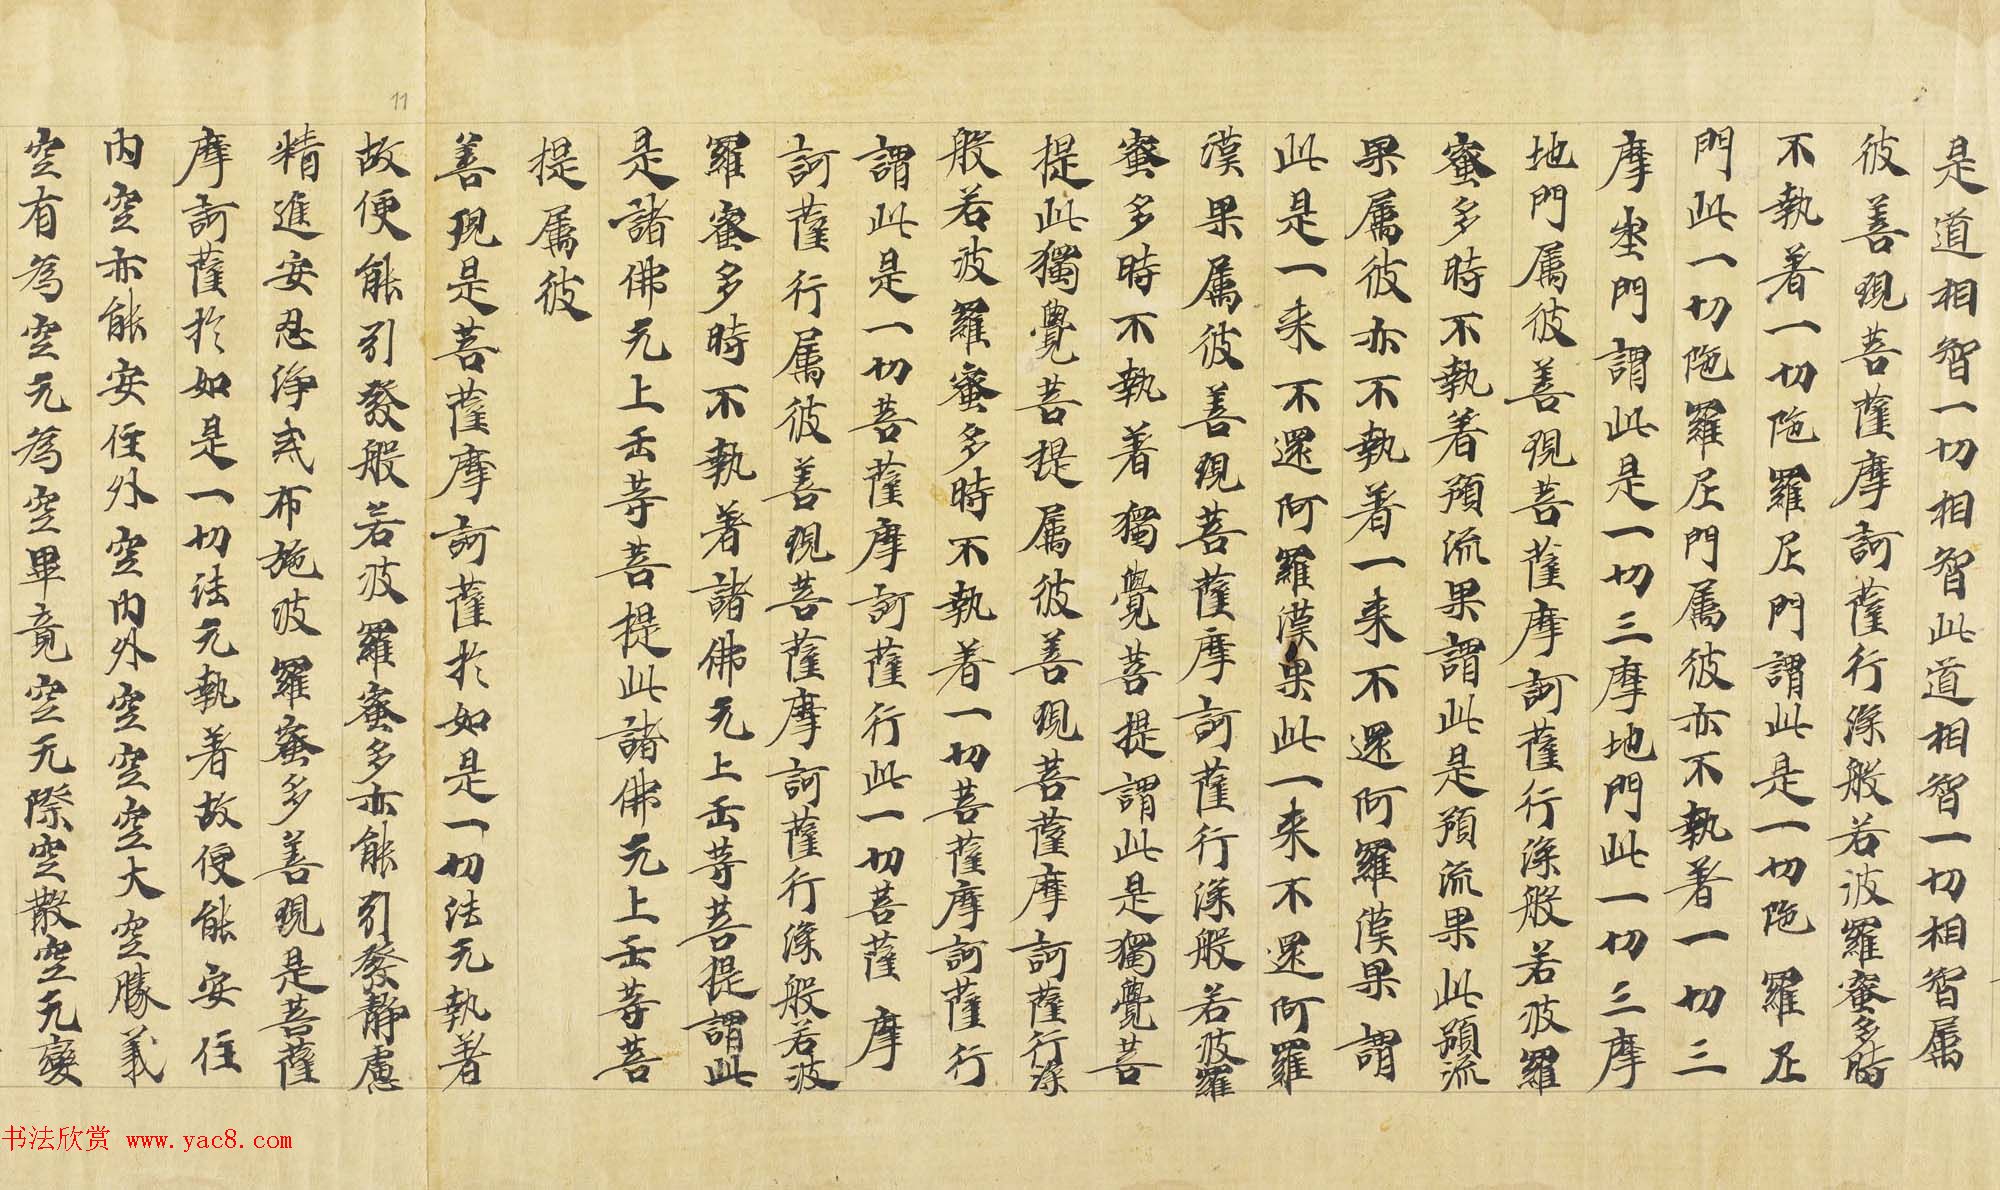 是道相智一切相智此道相智一切相智属
彼善現菩薩摩訶薩行深般若波羅蜜多時
不執著一切陁羅尼門謂此是一切陁羅尼
門此一切陁羅尼門属彼亦不執著一切三
摩地門謂此是一切三摩地門此一切三摩
地門属彼善現菩薩摩訶薩行深般若波羅
蜜多時不執著預流果謂此是預流果此預流
果属彼亦不執著一来不還阿羅漢果謂
此是一来不還阿羅漢果此一来不還阿羅
漢果属彼善現菩薩摩訶薩行深般若波羅
蜜多時不執著獨覺菩提謂此是獨覺菩
提此獨覺菩提属彼善現菩薩摩訶薩行深
般若波羅蜜多時不執著一切菩薩摩訶薩行
謂此是一切菩薩摩訶薩行此一切菩薩摩
訶薩行属彼善現菩薩摩訶薩行深般若波
羅蜜多時不執著諸佛无上正等菩提謂此
是諸佛无上正等菩提此諸佛无上正等菩
提属彼
善現是菩薩摩訶薩於如是一切法无執著
故便能引發般若波羅蜜多亦能引發靜慮
精進安忍淨戒布施波羅蜜多善現是菩薩
摩訶薩於如是一切法无執著故便能安住
內空亦能安住外空內外空空空大空勝義
空有為空无為空畢竟空无際空散空无變
11
书法欣赏 www.yac8.com